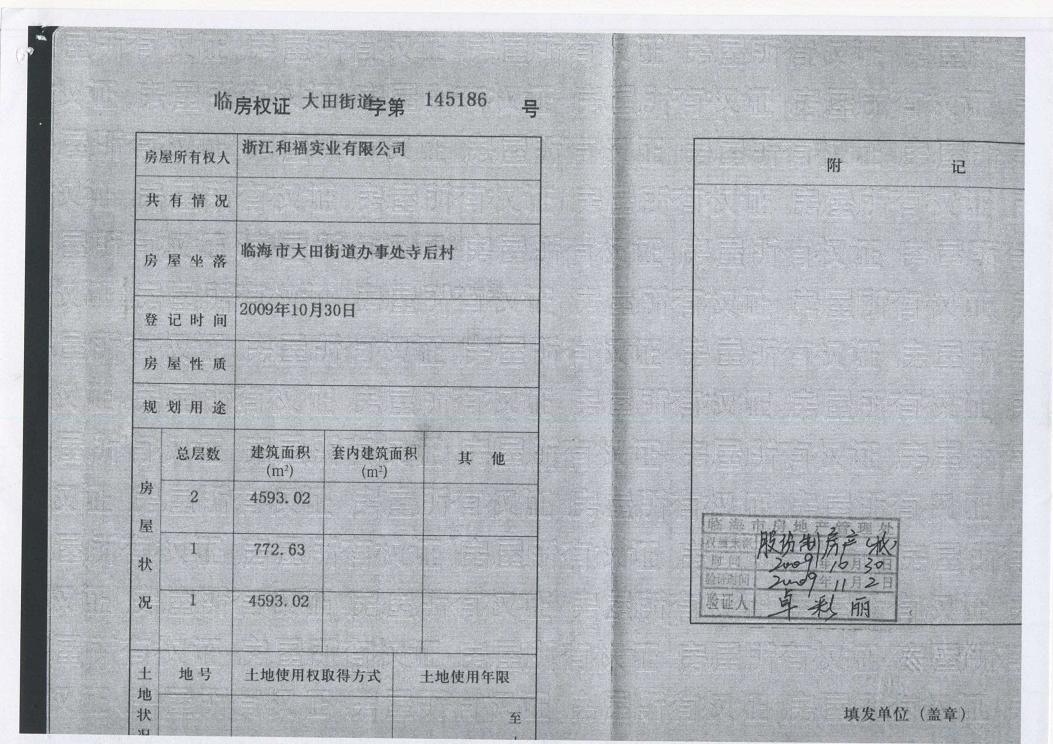 临房权证 大田街道字第 145186 号
房屋所有权人 浙江和福实业有限公司
共有情况
房屋坐落 临海市大田街道办事处寺后村
登记时间 2009年10月30日
房屋性质
规划用途
房屋状况
总层数 建筑面积(m²) 套内建筑面积(m²) 其他
2 4593.02
1 772.63
1 4593.02
土地状况
地号 土地使用权取得方式 土地使用年限
至
附记
临海市房地产管理处
权源来源 股份制房产
时间 2009年10月30日
验证时间 2009年11月2日
验证人 卓彩丽
填发单位（盖章）